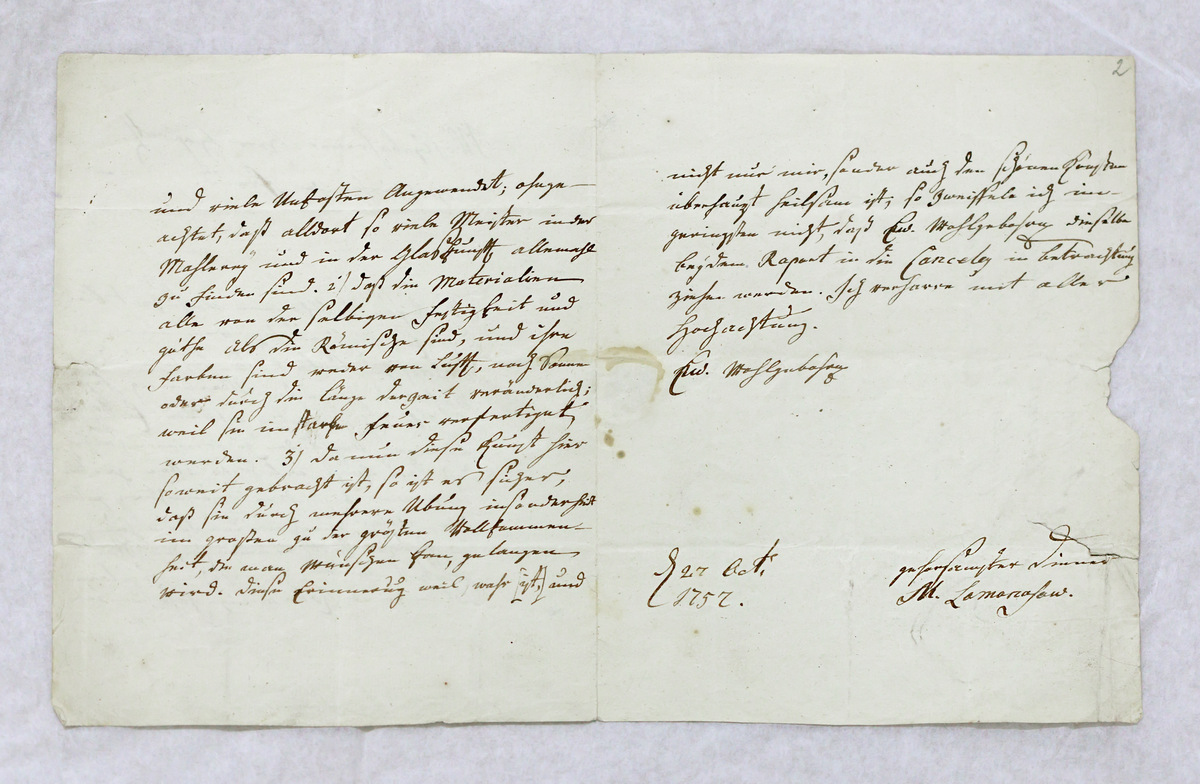 2
und viele Unkosten Angewendet; ohnge-
achtet, daß alldort so viele Meister in der
Mahlerey und in der Glaskunst allemahl
zu finden sind. 2) daß die Materialien
alle von der selbigen Festigkeit und
güthe als die Römische sind, und ihre
farben sind weder von Luft, noch Sonne
oder durch die länge der zeit veränderlich;
weil sie im starken feuer verfertiget
werden. 3) da nun diese Kunst hier
soweit gebracht ist, so ist es sicher,
daß sie durch mehrere Übung insonderheit
im großen zu der grösten Vollkommen-
heit, die man wünschen kan, gelangen
wird. diese Erinnerung weil, wahr [ist,] und
nicht nur mir, sonder auch den schönen Künsten
überhaupt heilsam ist; so zweiffele ich im
geringsten nicht, daß Ew. Wohlgebohrn dieselbe
bey dem Raport in die Canceley in betrachtung
ziehen werden. Ich verharre mit aller
Hochachtung.
Ew. Wohlgebohrn
d 27 Oct.
1757.
gehorsamster Diener
M. Lomonosow.